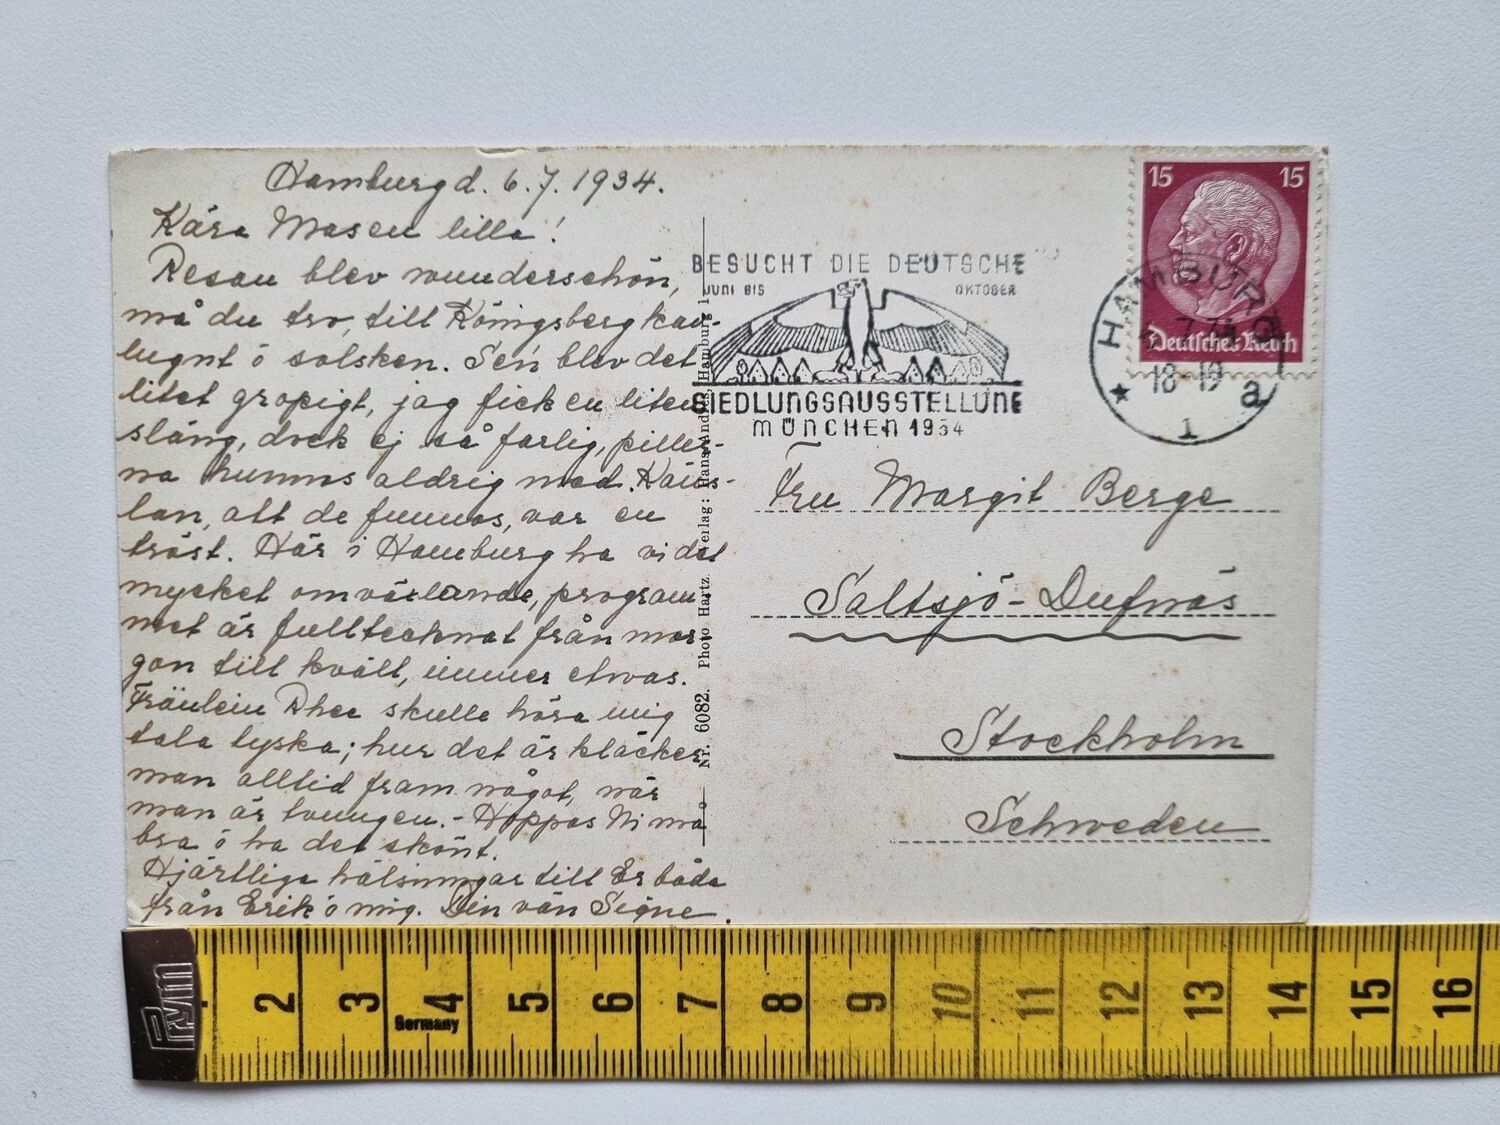 Hamburg d. 6.7.1934.
Kära Masen lilla!
Resan blev wunderschön,
må du tro, till Königsberg kav-
lugnt ö solsken. Sen blev det
litet gropigt, jag fick en liten
släng, dock ej så farlig, piller-
na hunnos aldrig med. Käx-
lan, att de funnos, var en
tröst. Här i Hamburg ha vi det
mycket omväxlande, program-
met är fulltecknat från mor-
gon till kväll, immer etwas.
Fräulein Rhee skulle höra mig
tala tyska; hur det är kläcker
man alltid fram något, när
man är tvungen. - Hoppas Ni må
bra ö ha det skönt.
Hjärtliga hälsningar till Er båda
från Erik ö mig. Din vän Signe.
Nr. 6082. Photo Hartz. Verlag: Hans Andres, Hamburg 1
BESUCHT DIE DEUTSCHE
JUNI BIS OKTOBER
SIEDLUNGSAUSSTELLUNG
MÜNCHEN 1934
15 15
Deutsches Reich
HAMBURG
7.34
18-19
* 1 a
Fru Margit Berge
Saltsjö-Dufnäs
Stockholm
Schweden
Prym
2 3 4 5 6 7 8 9 10 11 12 13 14 15 16
Germany